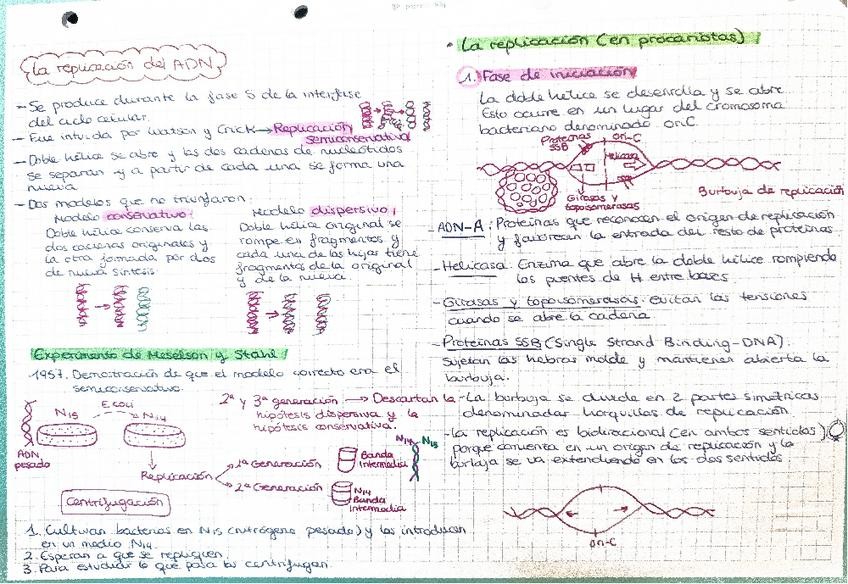 La replicación del ADN
- Se produce durante la fase S de la interfase
del ciclo celular.
- Fue intuida por Watson y Crick → Replicación
semiconservativa
- Doble hélice se abre y las dos cadenas de nucleótidos
se separan y a partir de cada una se forma una
nueva.
- Dos modelos que no triunfaron
Modelo conservativo:
Doble hélice conserva las
dos cadenas originales y
la otra formada por dos
de nueva síntesis.
Modelo dispersivo:
Doble hélice original se
rompe en fragmentos y
cada una de las hijas tiene
fragmentos de la original
y de la nueva.
Experimento de Meselson y Stahl
1957. Demostración de que el modelo correcto era el
semiconservativo.
N15
E.coli
N14
ADN
pesado
2ª y 3ª generación → Descartan la
hipótesis dispersiva y la
hipótesis conservativa.
Replicación
1ª Generación
Banda
Intermedia
2ª Generación
N14
Banda
Intermedia
N14 N15
Centrifugación
1. Cultivan bacterias en N15 (nitrógeno pesado) y las introducen
en un medio N14.
2. Esperan a que se repliquen.
3. Para estudiar lo que pasa las centrifugan.
• La replicación (en procariotas)
1. Fase de iniciación
La doble hélice se desenrolla y se abre.
Esto ocurre en un lugar del cromosoma
bacteriano denominado oriC.
Proteínas
SSB
ori-C
Helicasa
Girasas y
topoisomerasas
Burbuja de replicación
- ADN-A: Proteínas que reconocen el origen de replicación
y favorecen la entrada del resto de proteínas.
- Helicasa: Enzima que abre la doble hélice rompiendo
los puentes de H entre bases
- Girasas y topoisomerasas: evitan las tensiones
cuando se abre la cadena
- Proteínas SSB (Single Strand Binding-DNA):
Sujetan las hebras molde y mantienen abierta la
burbuja.
- La burbuja se divide en 2 partes simétricas
denominadas horquillas de replicación.
- La replicación es bidireccional (en ambos sentidos)
porque comienza en un origen de replicación y la
burbuja se va extendiendo en los dos sentidos
ori-C